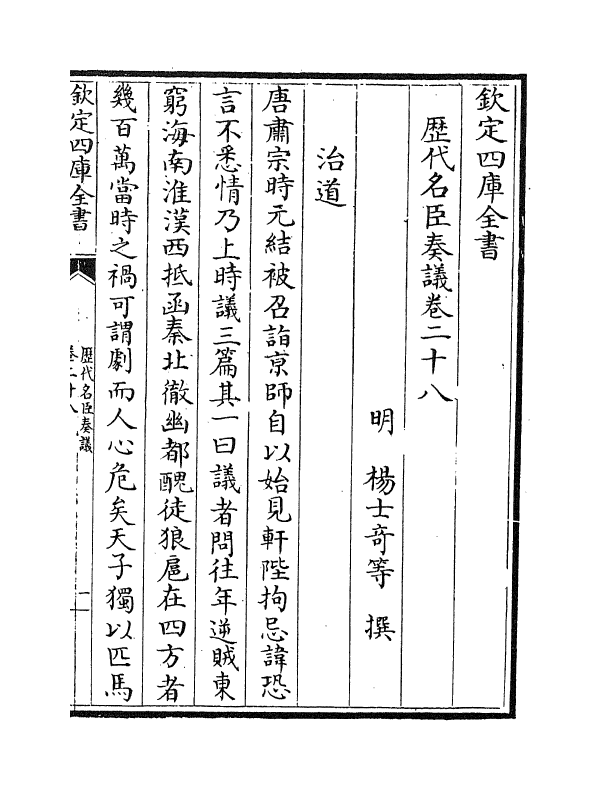 欽定四庫全書
歷代名臣奏議卷二十八
明 楊士竒等 撰
治道
唐肅宗時元結被召詣京師自以始見軒陛拘忌諱恐
言不悉情乃上時議三篇其一曰議者問往年逆賊東
窮海南淮漢西抵函秦北徹幽都醜徒狼扈在四方者
幾百萬當時之禍可謂劇而人心危矣天子獨以匹馬
欽定四庫全書
歷代名臣奏議
卷二十八
一